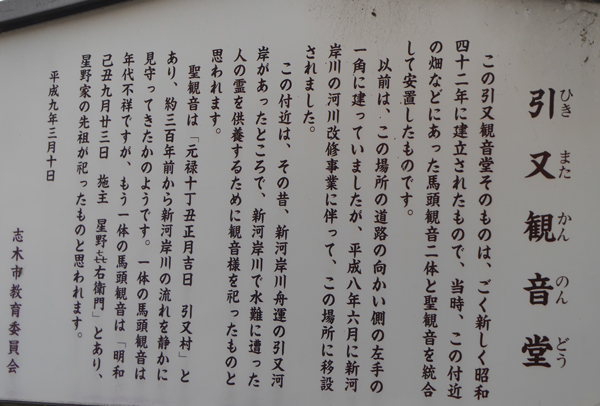 引又観音堂
ひき また かん のん どう
この引又観音堂そのものは、ごく新しく昭和
四十二年に建立されたもので、当時、この付近
の畑などにあった馬頭観音二体と聖観音を統合
して安置したものです。
以前は、この場所の道路の向かい側の左手の
一角に建っていましたが、平成八年六月に新河
岸川の河川改修事業に伴って、この場所に移設
されました。
この付近は、その昔、新河岸川舟運の引又河
岸があったところで、新河岸川で水難に遭った
人の霊を供養するために観音様を祀ったものと
思われます。
聖観音は「元禄十丁丑正月吉日 引又村」と
あり、約三百年前から新河岸川の流れを静かに
見守ってきたかのようです。一体の馬頭観音は
年代不祥ですが、もう一体の馬頭観音は「明和
己丑九月廿三日 施主 星野㐂右衛門」とあり、
星野家の先祖が祀ったものと思われます。
平成九年三月十日
志木市教育委員会